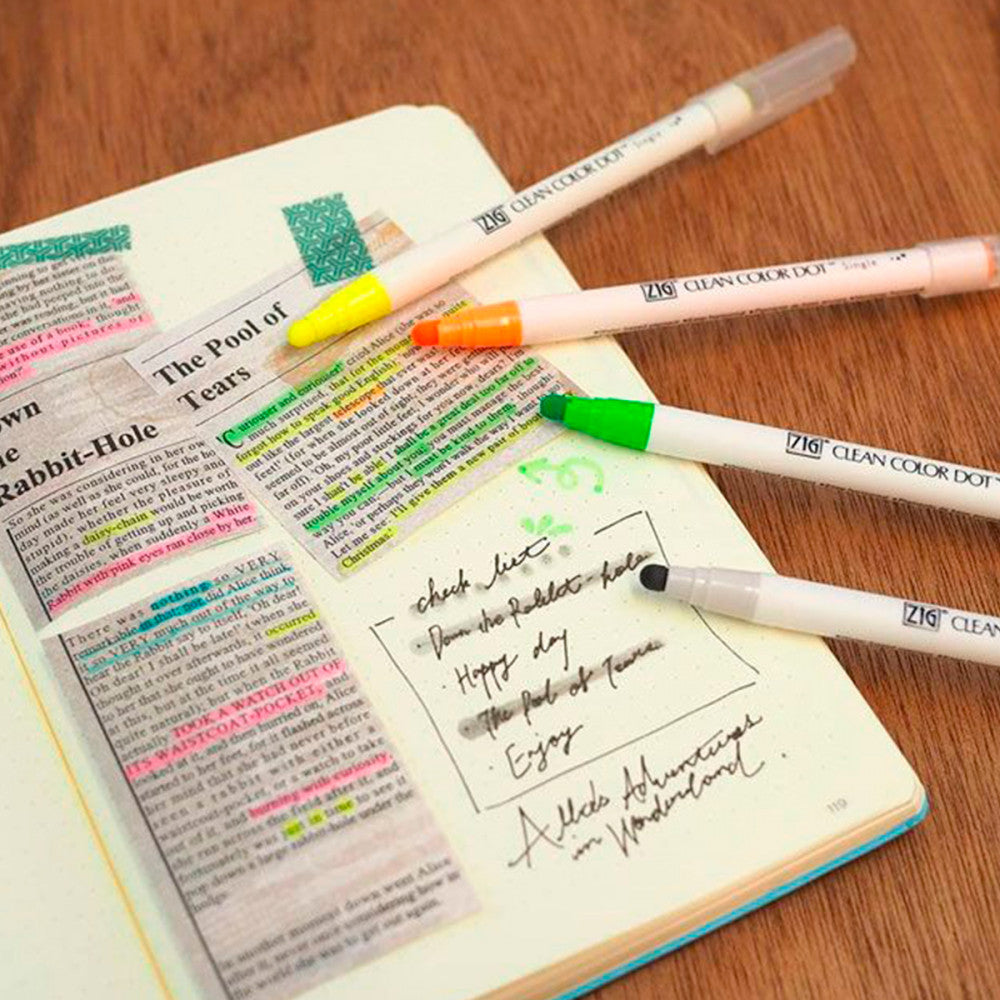 ZIG CLEAN COLOR DOT Single
ZIG CLEAN COLOR DOT Single
ZIG CLEAN COLOR DOT
ZIG CLEAN
having nothing to do:
she had peeped into the
was reading, but it had
or conversations in it, "and
use of a book," thought
without pictures or
Rabbit-Hole
So she was considering in her own
mind (as well as she could, for the hot
day made her feel very sleepy and
stupid), whether the pleasure of
making a daisy-chain would be worth
the trouble of getting up and picking
the daisies, when suddenly a White
Rabbit with pink eyes ran close by her.
There was nothing so VERY
remarkable in that; nor did Alice think
it so VERY much out of the way to
hear the Rabbit say to itself, "Oh dear!
Oh dear! I shall be late!" (when she
thought it over afterwards, it occurred
to her that she ought to have wondered
at this, but at the time it all seemed
quite natural); but when the Rabbit
actually TOOK A WATCH OUT OF
ITS WAISTCOAT-POCKET, and
looked at it, and then hurried on, Alice
started to her feet, for it flashed across
her mind that she had never before
seen a rabbit with either a
waistcoat-pocket, or a watch to take
out of it, and burning with curiosity,
she ran across the field after it, and
fortunately was just in time to see it
pop down a large rabbit-hole under the
hedge.
In another moment down went Alice
after it, never once considering how in
the world she was to get out again.
The Pool of
Tears
"Curiouser and curiouser!" cried Alice (she was so
much surprised, that for the moment she quite
forgot how to speak good English); "now
out like the largest telescope
feet!" (for when she looked down at her feet,
seemed to be almost out of sight, they were getting
far off). "Oh, my poor little feet, I wonder who will
on your shoes and stockings for you now, dears?
shan't be able! I shall be a great deal too far off to
trouble myself about you: you must manage the best
way you can;—but I must be kind to them," thought
Alice, "or perhaps they won't walk the way I want
Let me see: I'll give them a new pair of boots
Christmas."
check list
· Down the Rabbit-hole
· Happy day
· The Pool of Tears
· Enjoy
Alice's Adventures
in Wonderland
119